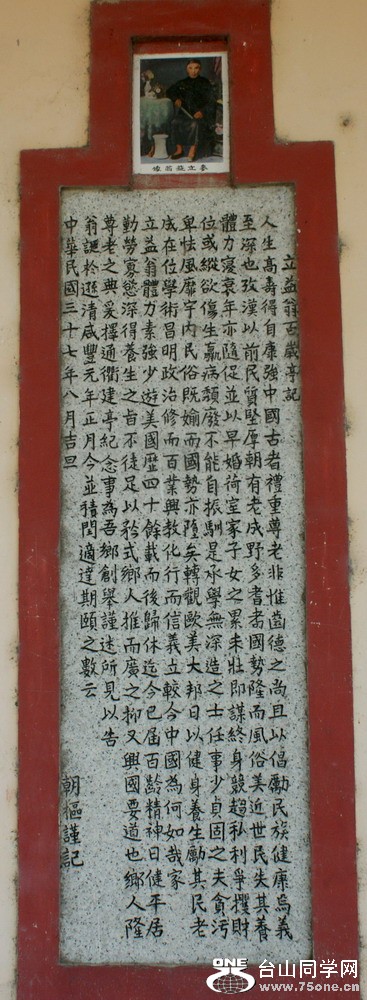 立益翁百歲亭記
人生高壽得自康強中國古者禮重尊老非惟齒德之尚且以倡勵民族健康為義
至深也攷漢以前民質堅厚朝有老成野多耆耇國勢隆而風俗美近世民失其養
體力寖衰年亦隨促並以早婚荷室家子女之累未壯即謀終身競趨私利爭攫財
位或縱欲傷生羸病頹廢不能自振馴足承學無深造之士任事少貞固之夫貪污
卑怯風靡宇內民俗既媮而國勢亦隆矣轉觀歐美大邦日以健身養生勵其民老
成在位學術昌明政治修而百業興教化行而信義立較今中國為何如哉家
立益翁體力素強少遊美國歷四十餘載而後歸休迄今已屆百齡精神日健平居
勤勞寡慾深得養生之旨不徒足以矜式鄉人推而廣之抑又興國要道也鄉人隆
尊老之典爰擇通衢建亭紀念事為吾鄉創舉謹述所見以告
翁誕於遜清咸豐元年正月今並積閏適達期頤之數云
中華民國三十七年八月吉旦
朝樞謹記
ONE
台山同学网
www.75one.cn